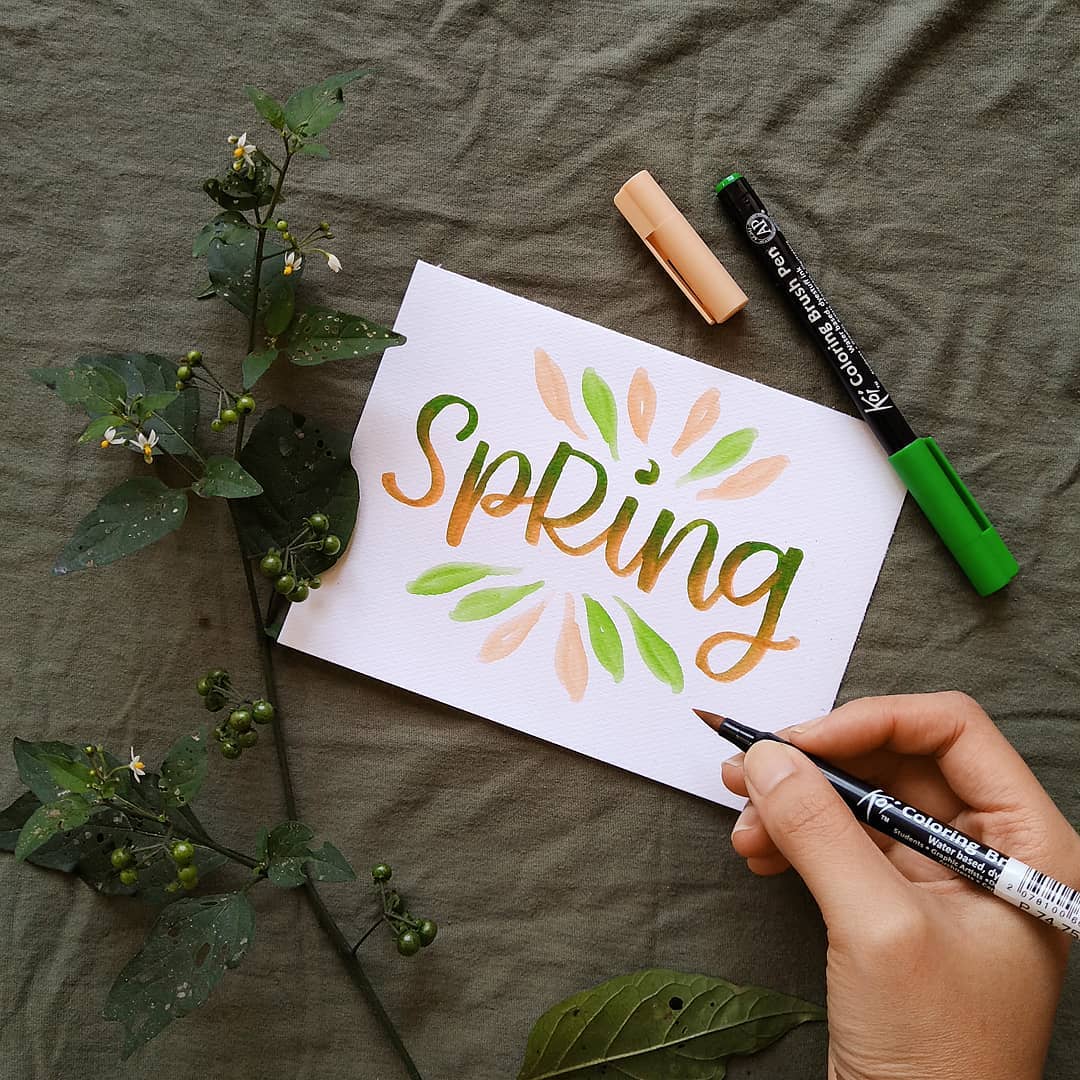 Spring
AP
Koi Coloring Brush Pen
Water based, dyestuff ink
Koi Coloring Br
TM
Water based, dy
Students • Graphic Artists •
P 74.75